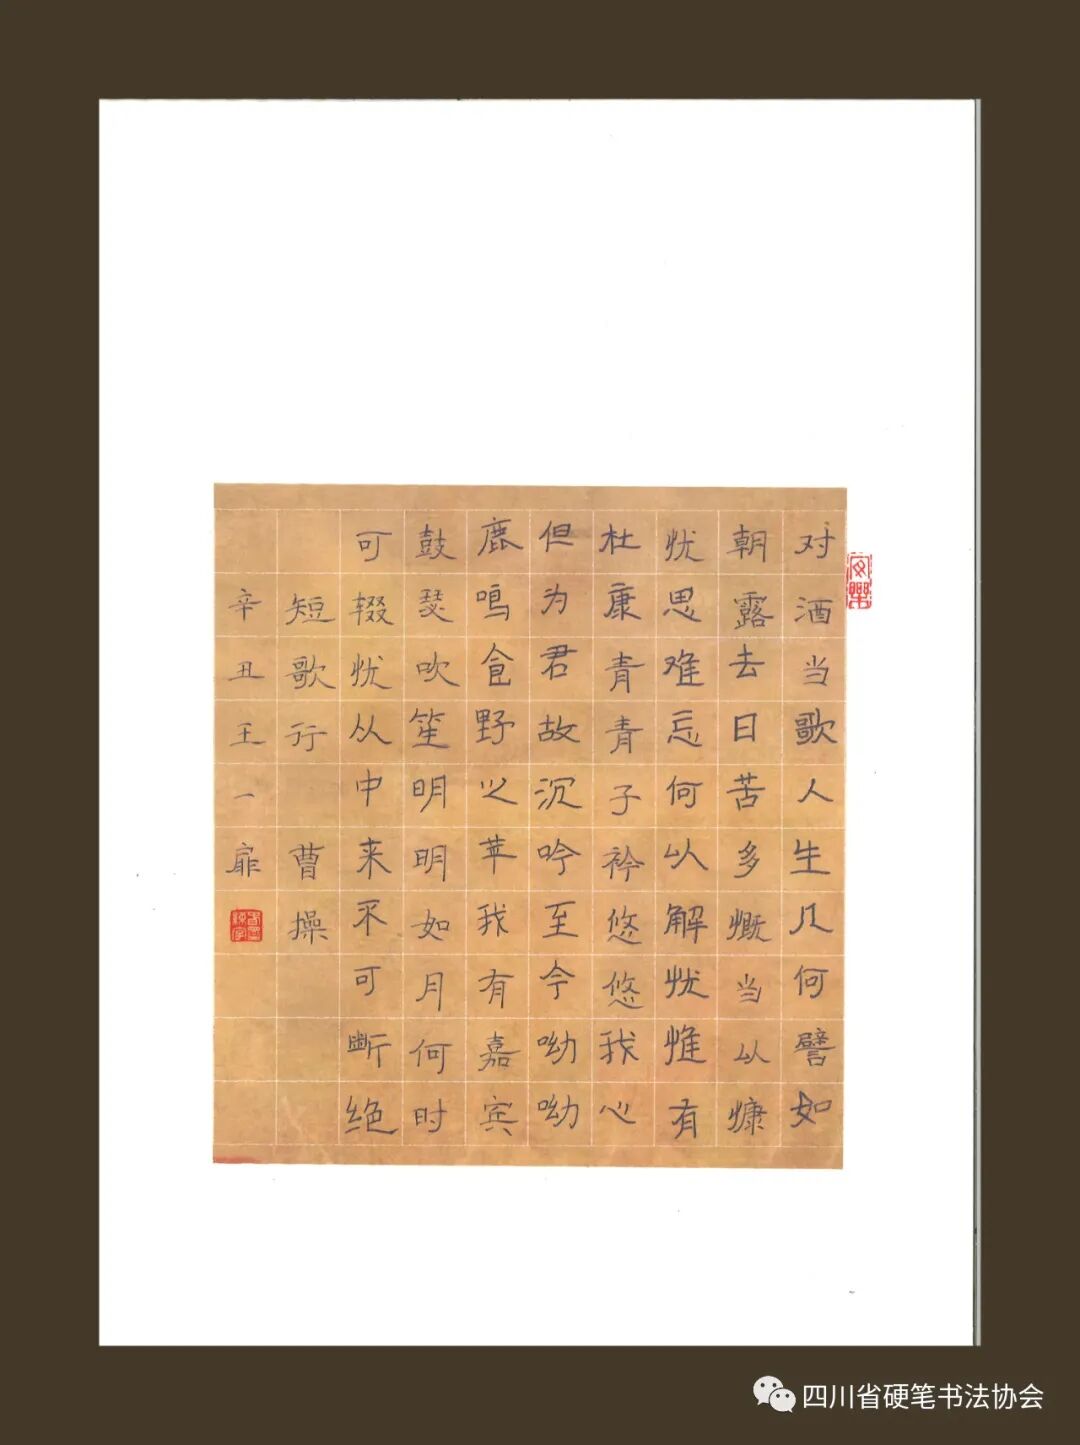 对酒当歌人生几何譬如
朝露去日苦多慨当以慷
忧思难忘何以解忧惟有
杜康青青子衿悠悠我心
但为君故沉吟至今呦呦
鹿鸣食野之苹我有嘉宾
鼓瑟吹笙明明如月何时
可辍忧从中来不可断绝
短歌行 曹操
辛丑王一扉
安樂
四川省硬笔书法协会